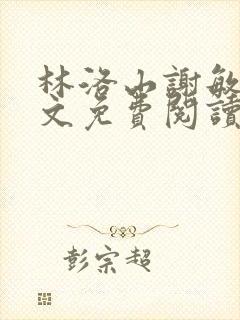 林洛山謝敏
文免費閱讀
彭宗超